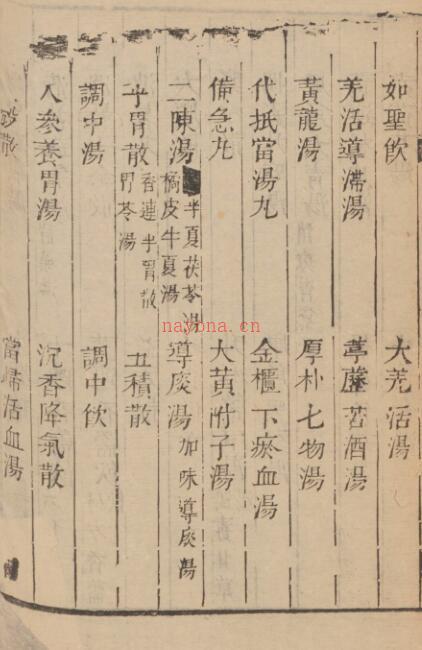 如聖飲　大羌活湯
羌活導滯湯　葶藶苦酒湯
黃龍湯　厚朴七物湯
代抵當湯丸　金櫃下瘀血湯
備急丸　大黃附子湯
二陳湯　半夏茯苓湯　橘皮半夏湯　導痰湯　加味導痰湯
平胃散　香連平胃散　胃苓湯　五積散
調中湯　調中飲
人參養胃湯　沉香降氣散
當歸活血湯
nayona.cn